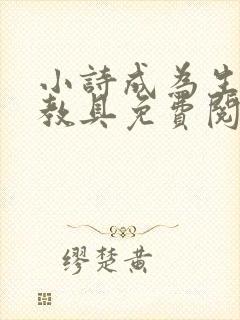 小詩成為生
教具免費閱
繆楚黃